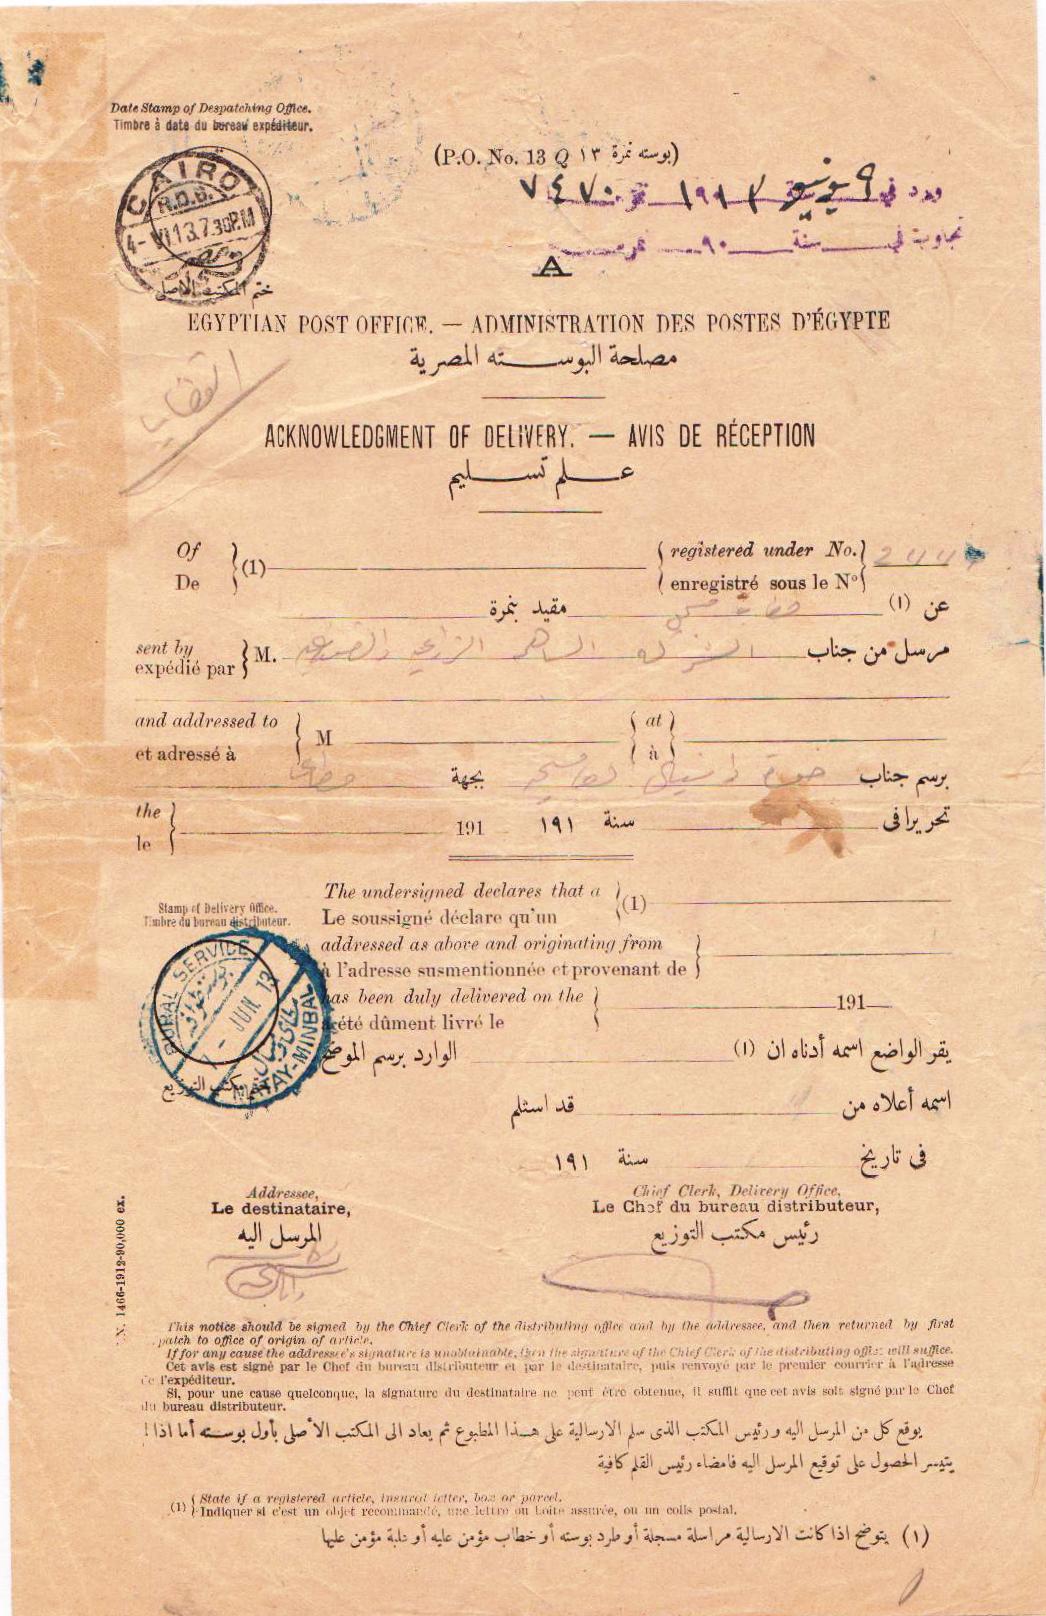 Date Stamp of Despatching Office.
Timbre à date du bureau expéditeur.
CAIRO
R.O.B.
4-VI 13.7.30P.M
ختم المكتب الاصلي
(P.O. No. 13 Q بوسته نمرة ١٣)
ورد في ٩ يونيو ١٩١٣ ٧٤٧٠
سنة ٩٠
A
EGYPTIAN POST OFFICE. — ADMINISTRATION DES POSTES D'ÉGYPTE
مصلحة البوسته المصرية
ACKNOWLEDGMENT OF DELIVERY. — AVIS DE RÉCEPTION
علم تسليم
Of (1) registered under No.
De enregistré sous le No
عن (١) مقيد بنمرة
sent by M. مرسل من جناب
expédié par
and addressed to M at
et adressé à à
برسم جناب بجهة
the 191
le
تحريرا فى سنة ١٩١
Stamp of Delivery Office.
Timbre du bureau distributeur.
RURAL SERVICE
7 - JUN 13
MATAY-MINBAL
ختم مكتب التوزيع
The undersigned declares that a (1)
Le soussigné déclare qu'un
addressed as above and originating from
à l'adresse susmentionnée et provenant de
has been duly delivered on the 191
a été dûment livré le
يقر الواضع اسمه أدناه ان (١) الوارد برسم الموضح
اسمه أعلاه من قد استلم
فى تاريخ سنة ١٩١
Addressee,
Le destinataire,
المرسل اليه
Chief Clerk, Delivery Office,
Le Chef du bureau distributeur,
رئيس مكتب التوزيع
N. 1466-1912-90,000 ex.
This notice should be signed by the Chief Clerk of the distributing office and by the addressee, and then returned by first
patch to office of origin of article.
If for any cause the addressee's signature is unobtainable, then the signature of the Chief Clerk of the distributing office will suffice.
Cet avis est signé par le Chef du bureau distributeur et par le destinataire, puis renvoyé par le premier courrier à l'adresse
de l'expéditeur.
Si, pour une cause quelconque, la signature du destinataire ne peut être obtenue, il suffit que cet avis soit signé par le Chef
du bureau distributeur.
يوقع كل من المرسل اليه ورئيس المكتب الذى سلم الارسالية على هذا المطبوع ثم يعاد الى المكتب الأصلى بأول بوسته أما اذا
يتيسر الحصول على توقيع المرسل اليه فامضاء رئيس القلم كافية
(1) State if a registered article, insured letter, box or parcel.
Indiquer si c'est un objet recommandé, une lettre ou boîte assurée, ou un colis postal.
(١) يتوضح اذا كانت الارسالية مراسلة مسجلة أو طرد بوسته أو خطاب مؤمن عليه أو علبة مؤمن عليها